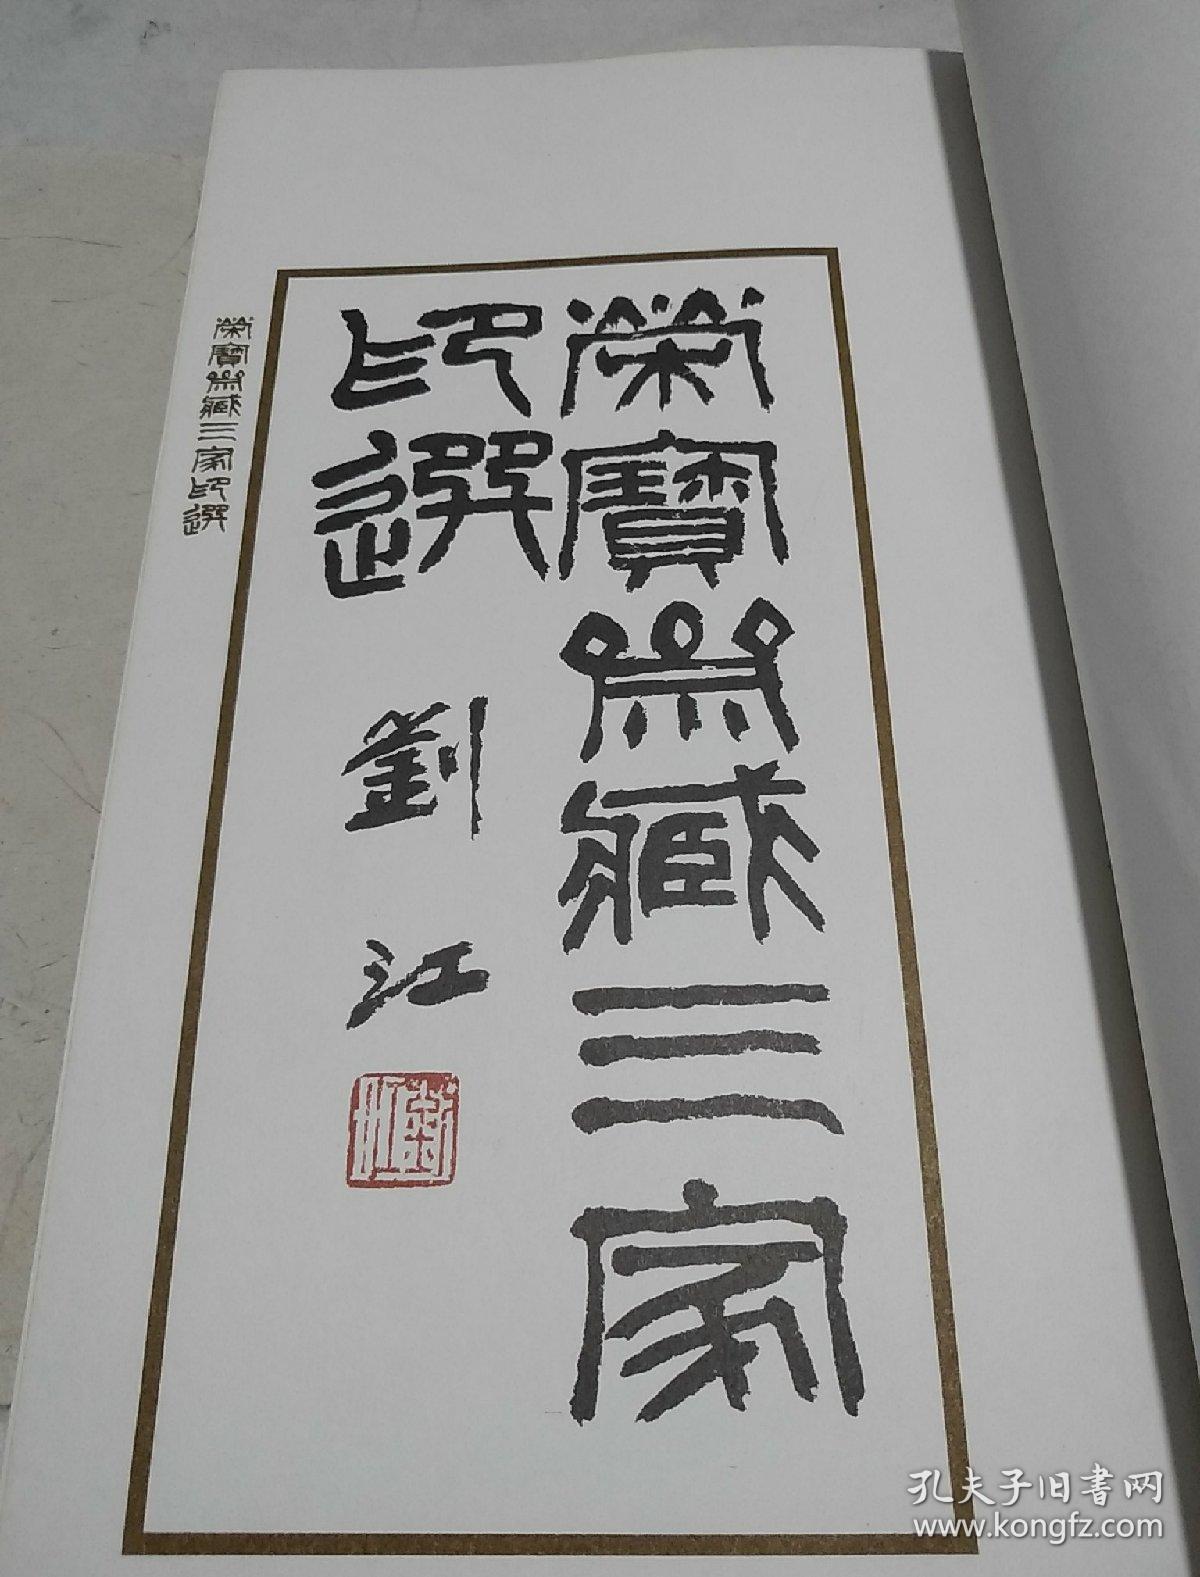 榮寶齋藏三家
印選
劉江
榮寶齋藏三家印選
孔夫子旧书网
www.kongfz.com